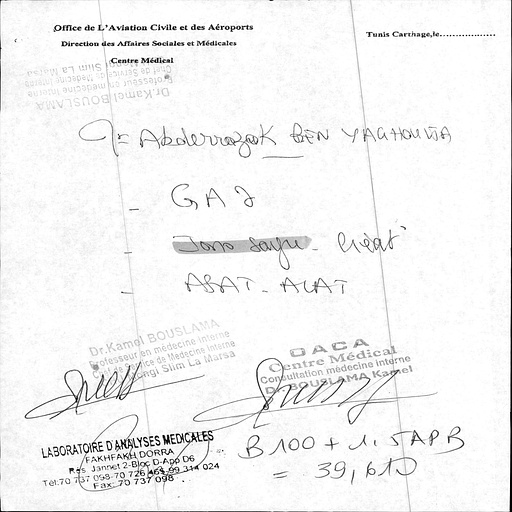 Office de L'Aviation Civile et des Aéroports
Direction des Affaires Sociales et Médicales
Centre Médical
Tunis Carthage,le..................
Dr.Kamel BOUSLAMA
Professeur en médecine interne
Slim La Marsa
Abderrazak BEN YAGHOUTA
- GAJ
- Iono sangu - Créat
- ASAT - ALAT
Dr.Kamel BOUSLAMA
Professeur en médecine interne
Service de Médecine Interne
Slim La Marsa
OACA
Centre Médical
Consultation médecine interne
Dr BOUSLAMA Kamel
LABORATOIRE D'ANALYSES MEDICALES
FAKHFAKH DORRA
Rés. Jannet 2-Bloc D-App D6
Tél:70 737 098-70 726 464-99 314 024
Fax: 70 737 098
B 100 + 1,5 APB
= 39,610